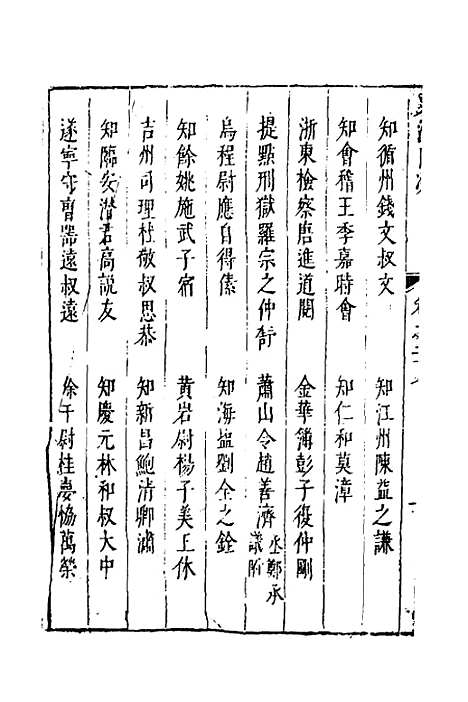 知循州錢文叔文　知江州陳益之謙
知會稽王季嘉時會　知仁和莫漳
浙東檢察唐進道閱　金華簿彭子復仲剛
提點刑獄羅宗之仲舒　蕭山令趙善濟丞鄭承議昕
烏程尉應自得傃　知海鹽劉全之銓
知餘姚施武子宿　黄岩尉楊子美王休
吉州司理杜敬叔思恭　知新昌鮑清卿潚
知臨安潛君高説友　知慶元林和叔大中
遂寧守曹器遠叔遠　徐千尉桂夢協萬榮